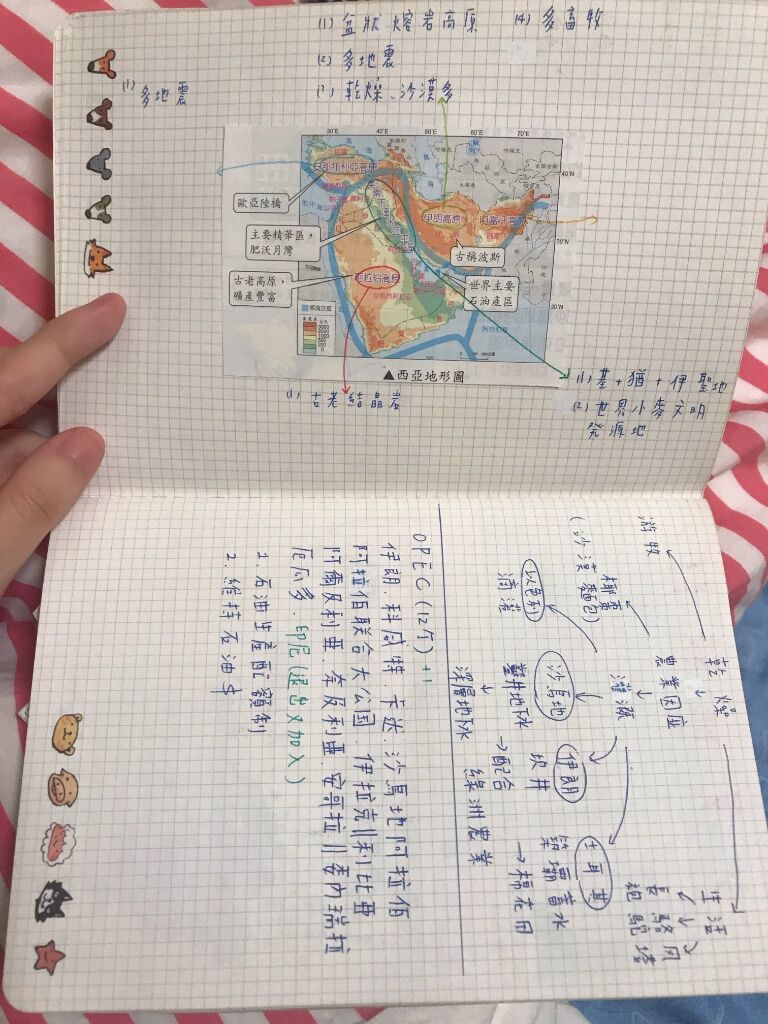 (1) 盆狀熔岩高原 (4) 多畜牧
(2) 多地震
(3) 乾燥、沙漠多
(1) 多地震
30°E 40°E 50°E 60°E 70°E
40°N
30°N
20°N
安那托利亞高原
歐亞陸橋
主要精華區，
肥沃月灣
古老高原，
礦產豐富
伊朗高原
伊朗
古稱波斯
世界主要
石油產區
阿拉伯高原
阿拉伯海
▲西亞地形圖
(1) 古老結晶岩
(1) 基+猶+伊 聖地
(2) 世界小麥文明
發源地
乾燥
游牧
農業因應
椰棗
(沙漠麵包)
灌溉
以色列
滴灌
沙烏地
鑿井地下水
深層地下水
伊朗
坎井
→配合
綠洲農業
土耳其
築壩蓄水
→棉花田
生活
長袍
駱駝
OPEC (12個) +1
伊朗.科威特.卡達.沙烏地阿拉伯
阿拉伯聯合大公國.伊拉克||利比亞
阿爾及利亞.奈及利亞.安哥拉||委內瑞拉
厄瓜多.印尼(退出又加入)
1. 石油生產配額制
2. 維持石油